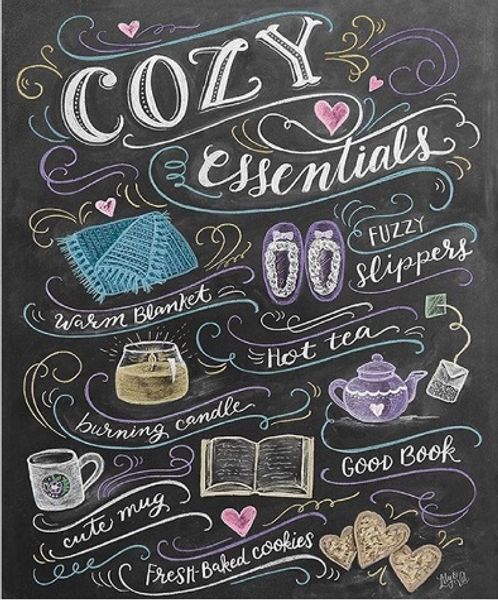 COZY
essentials
FUZZY
slippers
Warm Blanket
Hot tea
burning candle
GOOD BOOK
cute mug
FRESH-BAKED COOKIES